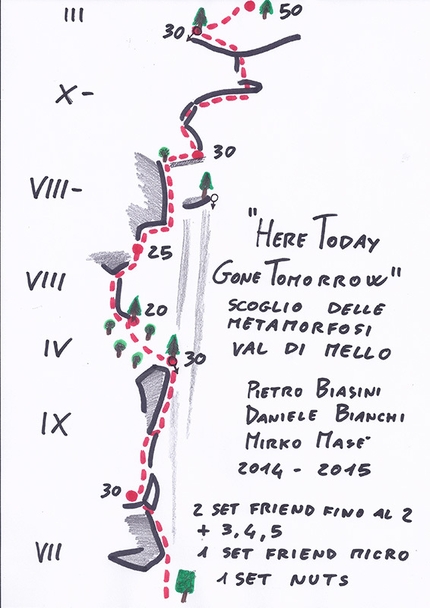 III
30
50
X-
30
VIII-
"HERE TODAY
GONE TOMORROW"
25
VIII
SCOGLIO DELLE
METAMORFOSI
VAL DI MELLO
20
IV
30
PIETRO BIASINI
DANIELE BIANCHI
MIRKO MASE'
2014 - 2015
IX
30
2 SET FRIEND FINO AL 2
+ 3,4,5
1 SET FRIEND MICRO
1 SET NUTS
VII